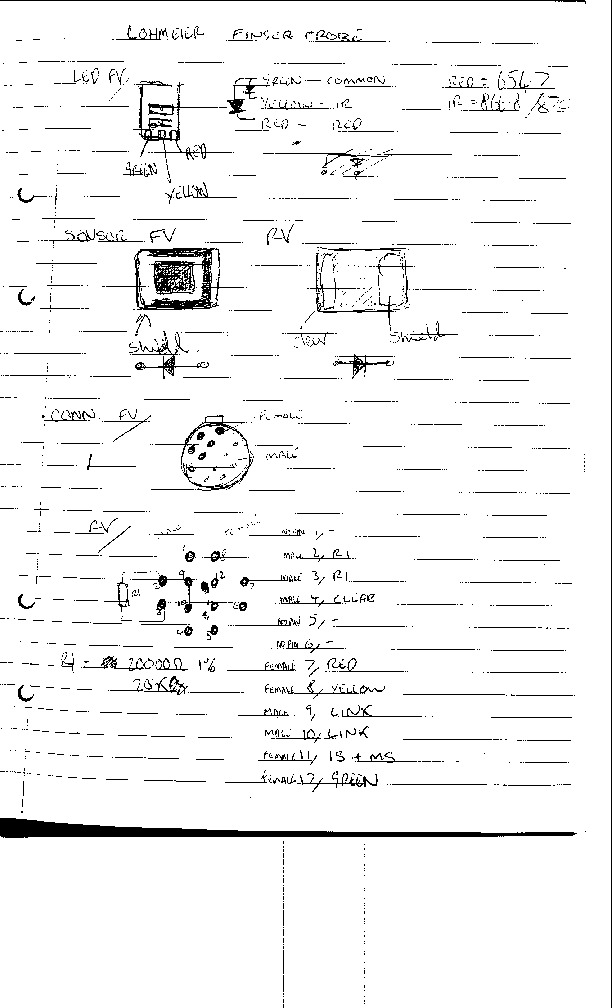 LOHMEIER FINGER PROBE
LED FV/
GREEN — COMMON
YELLOW — IR
RED — RED
RED =
IR =
GREEN
YELLOW
RED
SENSOR FV
RV
shield
clear
shield
CONN FV/
FEMALE
MALE
RV/
R1
NO PIN 1, -
MALE 2, R1
MALE 3, R1
MALE 4, CLEAR
NO PIN 5, -
NO PIN 6, -
FEMALE 7, RED
FEMALE 8, YELLOW
MALE 9, LINK
MALE 10, LINK
FEMALE 11, IS + MS
FEMALE 12, GREEN
R1 = 20000Ω 1%